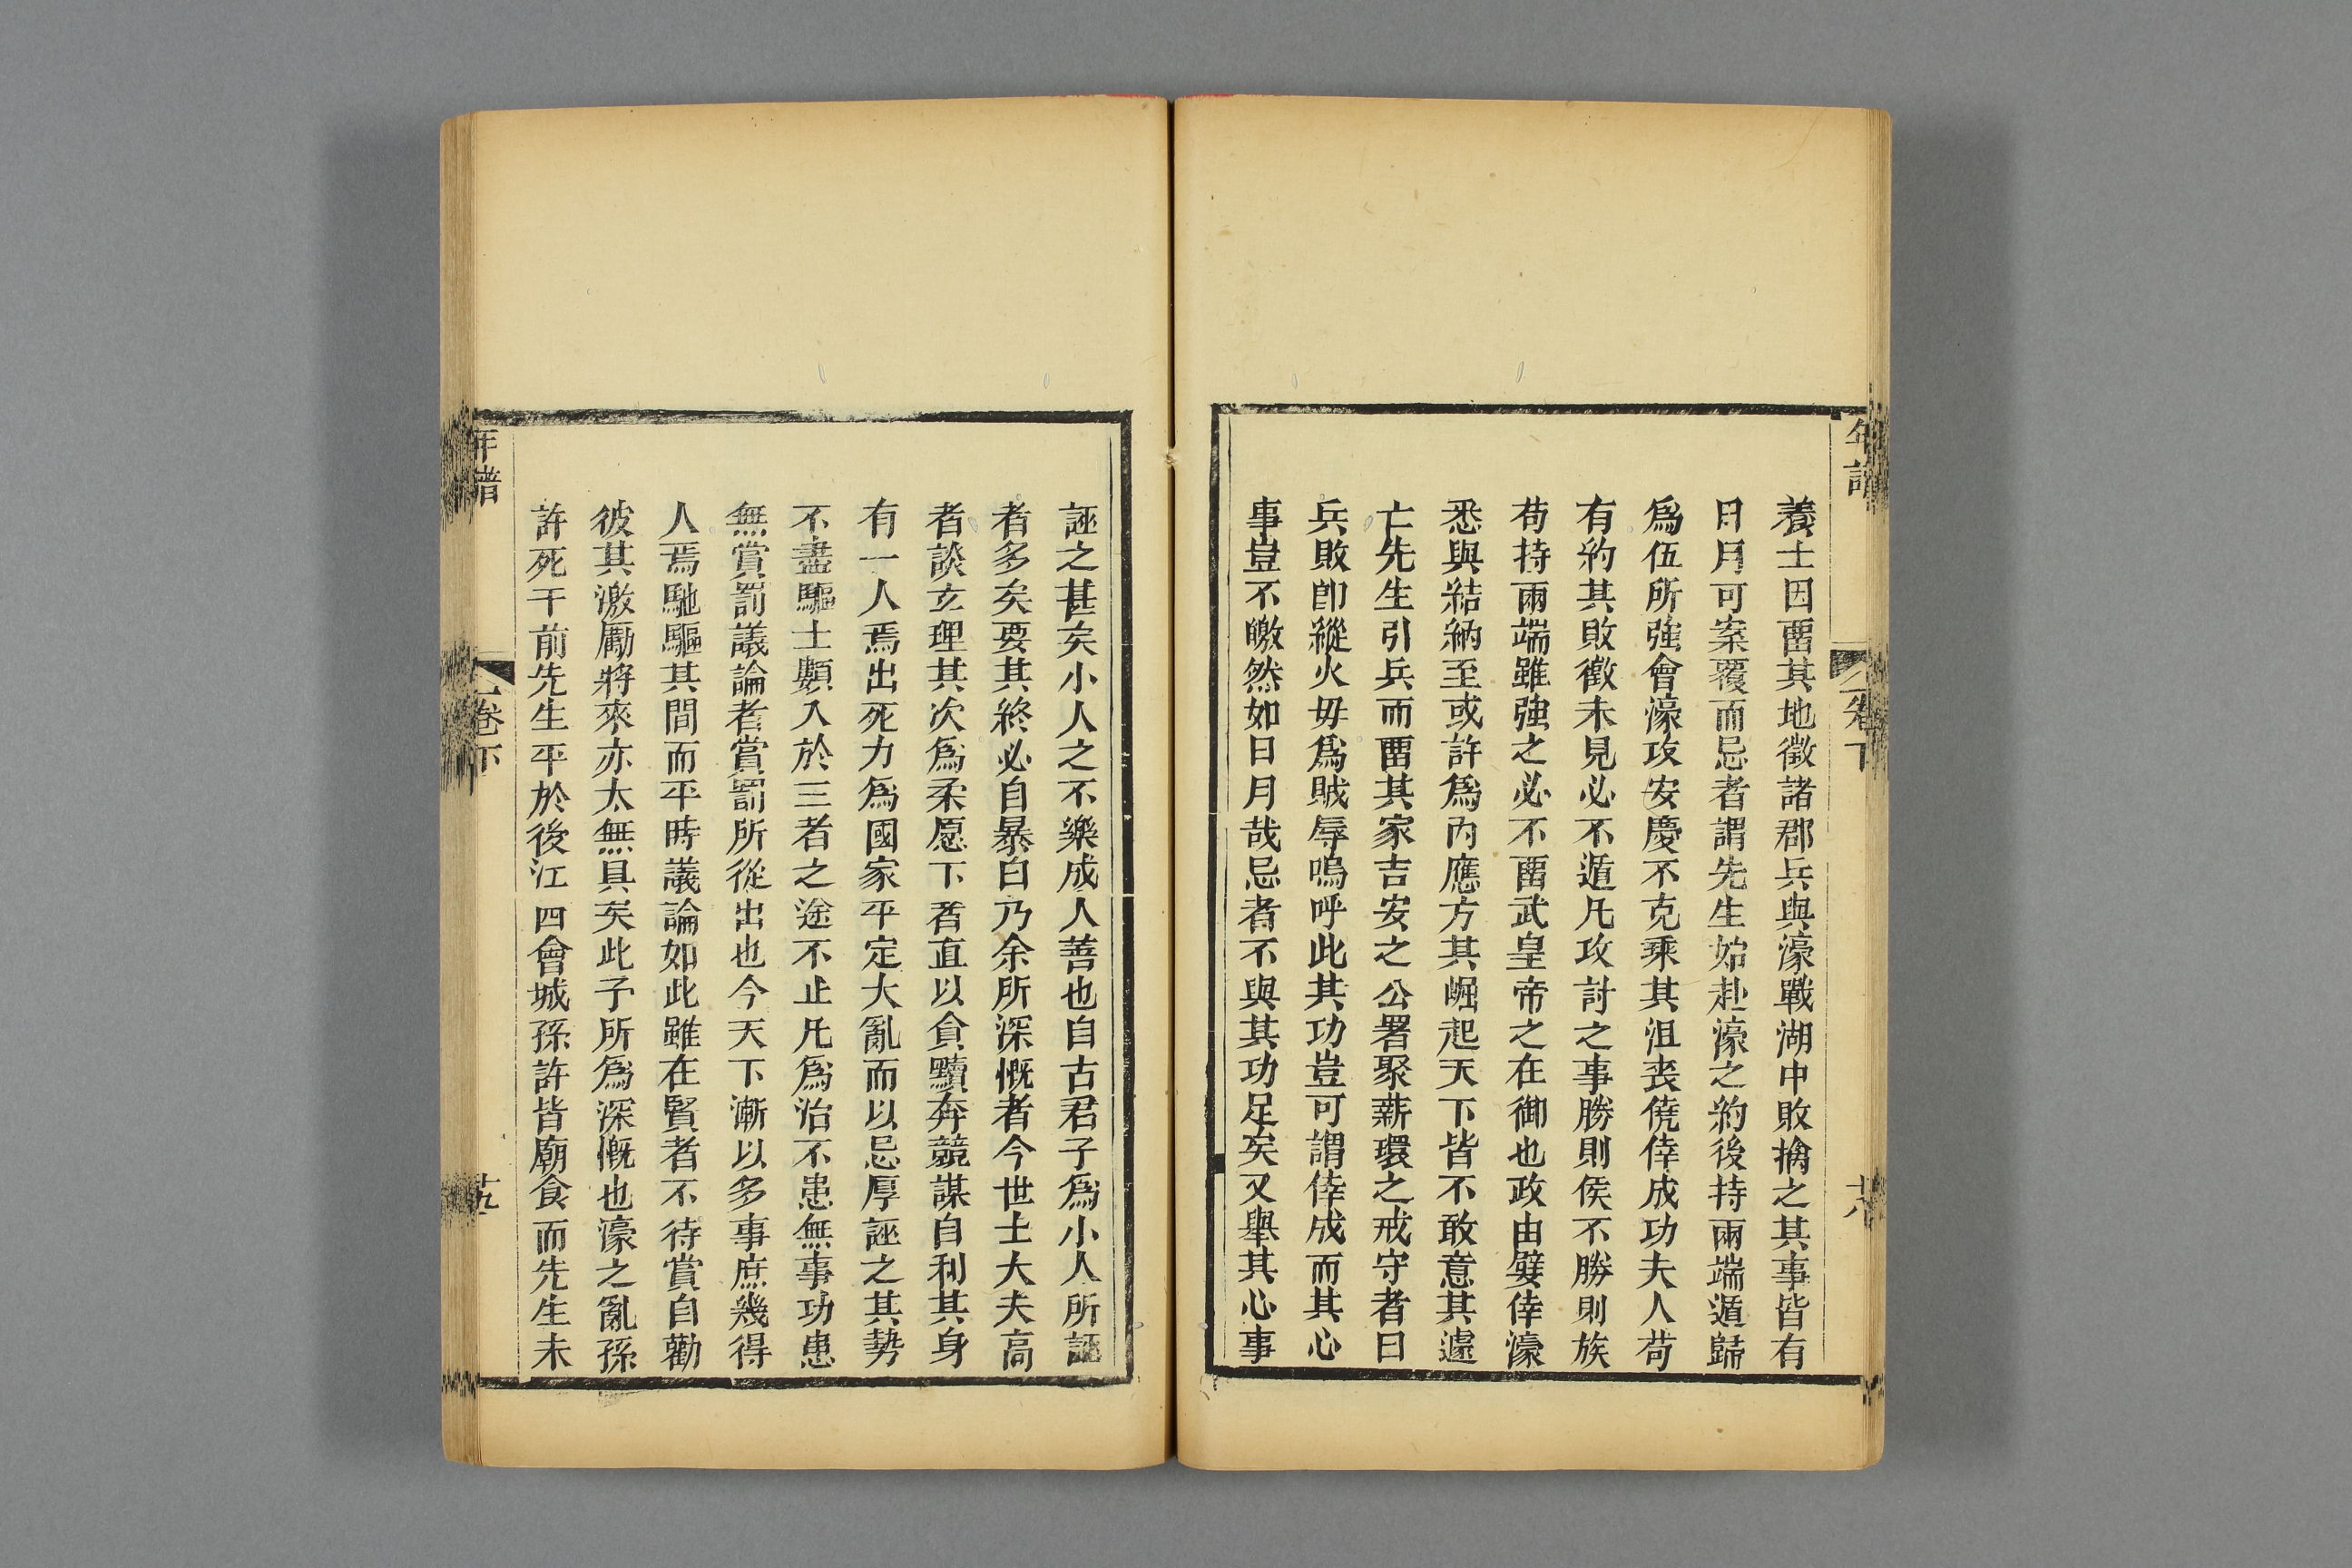 年譜
卷下
廿八
養士因畱其地徵諸郡兵與濠戰湖中敗擒之其事皆有
日月可案覆而忌者謂先生始赴濠之約後持兩端遁歸
爲伍所強會濠攻安慶不克乘其沮喪僥倖成功夫人苟
有約其敗徵未見必不遁凡攻討之事勝則侯不勝則族
苟持兩端雖強之必不畱武皇帝之在御也政由嬖倖濠
悉與結納至或許爲內應方其崛起天下皆不敢意其遽
亡先生引兵而畱其家吉安之公署聚薪環之戒守者曰
兵敗卽縱火毋爲賊辱嗚呼此其功豈可謂倖成而其心
事豈不皦然如日月哉忌者不與其功足矣又舉其心事
誣之甚矣小人之不樂成人善也自古君子爲小人所誣
者多矣要其終必自暴白乃余所深慨者今世士大夫高
者談玄理其次爲柔愿下者直以貪黷奔競謀自利其身
有一人焉出死力爲國家平定大亂而以忌厚誣之其勢
不盡驅士類入於三者之途不止凡爲治不患無事功患
無賞罰議論者賞罰所從出也今天下漸以多事庶幾得
人焉馳驅其間而平時議論如此雖在賢者不待賞自勸
彼其激厲將來亦太無具矣此予所爲深慨也濠之亂孫
許死于前先生平於後江西會城孫許皆廟食而先生未
年譜
卷下
廿九